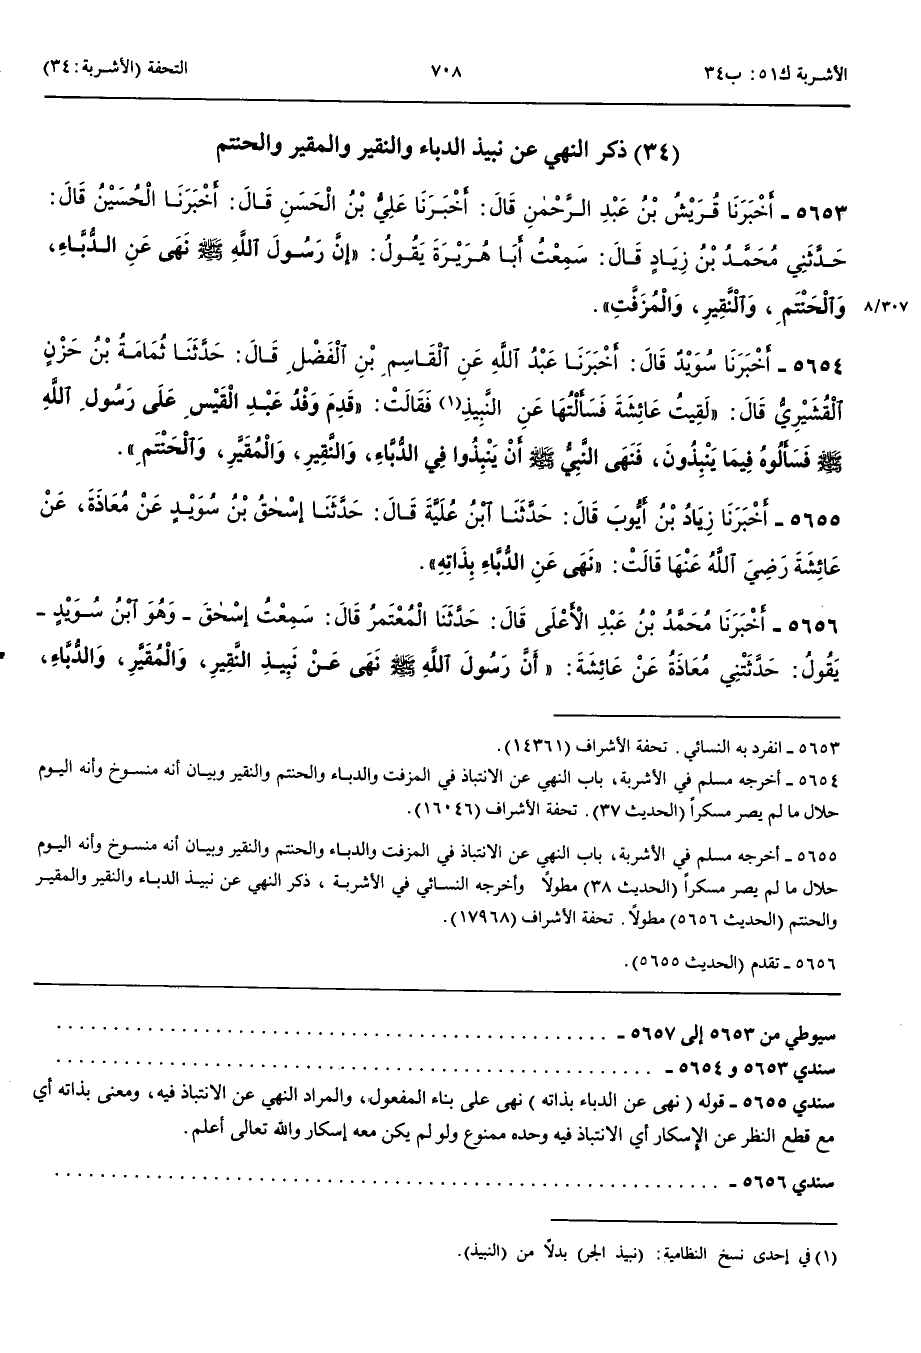 الأشربة ك٥١: ب٣٤ ٧٠٨ التحفة (الأشربة: ٣٤)
(٣٤) ذكر النهي عن نبيذ الدباء والنقير والمقير والحنتم
٥٦٥٣ ـ أَخْبَرَنَا قُرَيْشُ بْنُ عَبْدِ الرَّحْمٰنِ قَالَ: أَخْبَرَنَا عَلِيُّ بْنُ الْحَسَنِ قَالَ: أَخْبَرَنَا الْحُسَيْنُ قَالَ:
حَدَّثَنِي مُحَمَّدُ بْنُ زِيَادٍ قَالَ: سَمِعْتُ أَبَا هُرَيْرَةَ يَقُولُ: «إِنَّ رَسُولَ ٱللَّهِ ﷺ نَهَى عَنِ الدُّبَّاءِ،
وَٱلْحَنْتَمِ، وَٱلنَّقِيرِ، وَالْمُزَفَّتِ». ٨/٣٠٧
٥٦٥٤ ـ أَخْبَرَنَا سُوَيْدٌ قَالَ: أَخْبَرَنَا عَبْدُ اللَّهِ عَنِ ٱلْقَاسِمِ بْنِ ٱلْفَضْلِ قَالَ: حَدَّثَنَا ثُمَامَةُ بْنُ حَزْنٍ
ٱلْقُشَيْرِيُّ قَالَ: «لَقِيتُ عَائِشَةَ فَسَأَلْتُهَا عَنِ النَّبِيذِ(١) فَقَالَتْ: «قَدِمَ وَفْدُ عَبْدِ الْقَيْسِ عَلَى رَسُولِ ٱللَّهِ
ﷺ فَسَأَلُوهُ فِيمَا يَنْبِذُونَ، فَنَهَى النَّبِيُّ ﷺ أَنْ يَنْبِذُوا فِي الدُّبَّاءِ، وَالنَّقِيرِ، وَالْمُقَيَّرِ، وَٱلْحَنْتَمِ».
٥٦٥٥ ـ أَخْبَرَنَا زِيَادُ بْنُ أَيُّوبَ قَالَ: حَدَّثَنَا ٱبْنُ عُلَيَّةَ قَالَ: حَدَّثَنَا إِسْحٰقُ بْنُ سُوَيْدٍ عَنْ مُعَاذَةَ، عَنْ
عَائِشَةَ رَضِيَ ٱللَّهُ عَنْهَا قَالَتْ: «نَهَى عَنِ الدُّبَّاءِ بِذَاتِهِ».
٥٦٥٦ ـ أَخْبَرَنَا مُحَمَّدُ بْنُ عَبْدِ الْأَعْلَى قَالَ: حَدَّثَنَا الْمُعْتَمِرُ قَالَ: سَمِعْتُ إِسْحٰقَ ـ وَهُوَ ٱبْنُ سُوَيْدٍ ـ
يَقُولُ: حَدَّثَتْنِي مُعَاذَةُ عَنْ عَائِشَةَ: «أَنَّ رَسُولَ ٱللَّهِ ﷺ نَهَى عَنْ نَبِيذِ النَّقِيرِ، وَالْمُقَيَّرِ، وَالدُّبَّاءِ،
٥٦٥٣ ـ انفرد به النسائي. تحفة الأشراف (١٤٣٦١).
٥٦٥٤ ـ أخرجه مسلم في الأشربة، باب النهي عن الانتباذ في المزفت والدباء والحنتم والنقير وبيان أنه منسوخ وأنه اليوم
حلال ما لم يصر مسكراً (الحديث ٣٧). تحفة الأشراف (١٦٠٤٦).
٥٦٥٥ ـ أخرجه مسلم في الأشربة، باب النهي عن الانتباذ في المزفت والدباء والحنتم والنقير وبيان أنه منسوخ وأنه اليوم
حلال ما لم يصر مسكراً (الحديث ٣٨) مطولاً وأخرجه النسائي في الأشربة، ذكر النهي عن نبيذ الدباء والنقير والمقير
والحنتم (الحديث ٥٦٥٦) مطولاً. تحفة الأشراف (١٧٩٦٨).
٥٦٥٦ ـ تقدم (الحديث ٥٦٥٥).
سيوطي من ٥٦٥٣ إلى ٥٦٥٧ ـ ................................................
سندي ٥٦٥٣ و ٥٦٥٤ ـ ................................................
سندي ٥٦٥٥ ـ قوله (نهى عن الدباء بذاته) نهى على بناء المفعول، والمراد النهي عن الانتباذ فيه، ومعنى بذاته أي
مع قطع النظر عن الإسكار أي الانتباذ فيه وحده ممنوع ولو لم يكن معه إسكار والله تعالى أعلم.
سندي ٥٦٥٦ ـ ................................................
(١) في إحدى نسخ النظامية: (نبيذ الجر) بدلاً من (النبيذ).